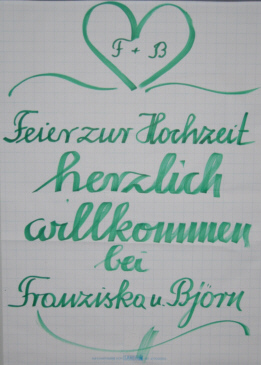 F + B
Feier zur Hochzeit
herzlich
willkommen
bei
Franziska u. Björn